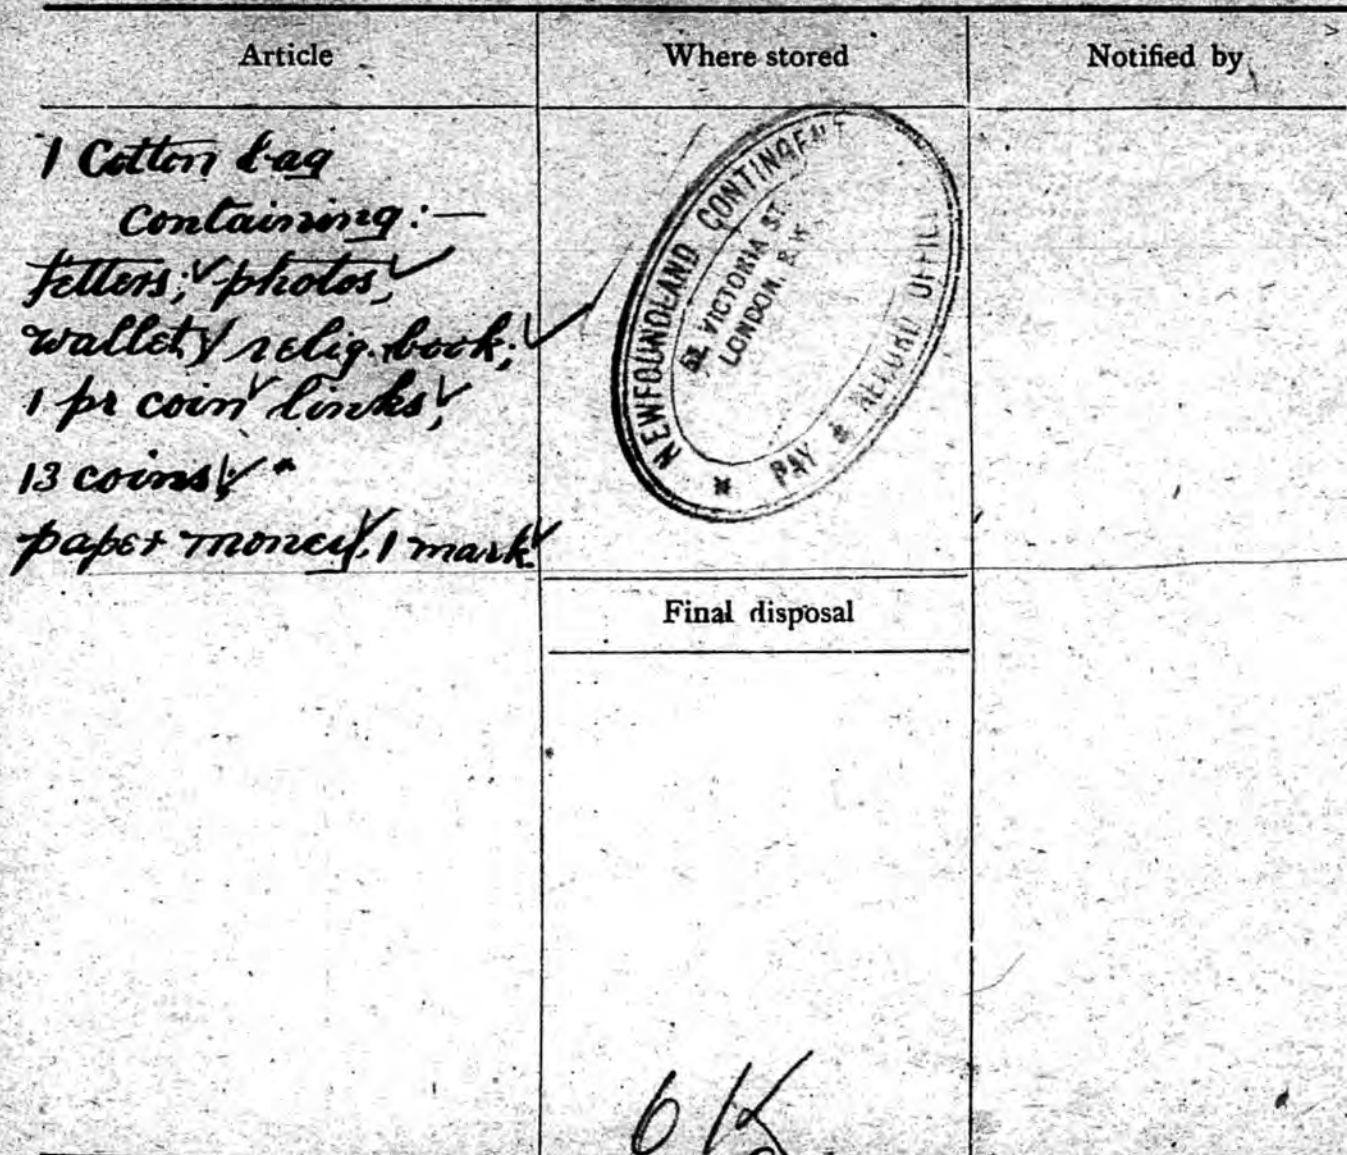 Article
Where stored
Notified by
1 Cotton bag
containing:—
letters; photos,
wallet, relig. book,
1 pr coin links,
13 coins,
paper money, 1 mark.
NEWFOUNDLAND CONTINGENT
PAY & RECORD OFFICE
VICTORIA ST.
LONDON. S.W.
Final disposal